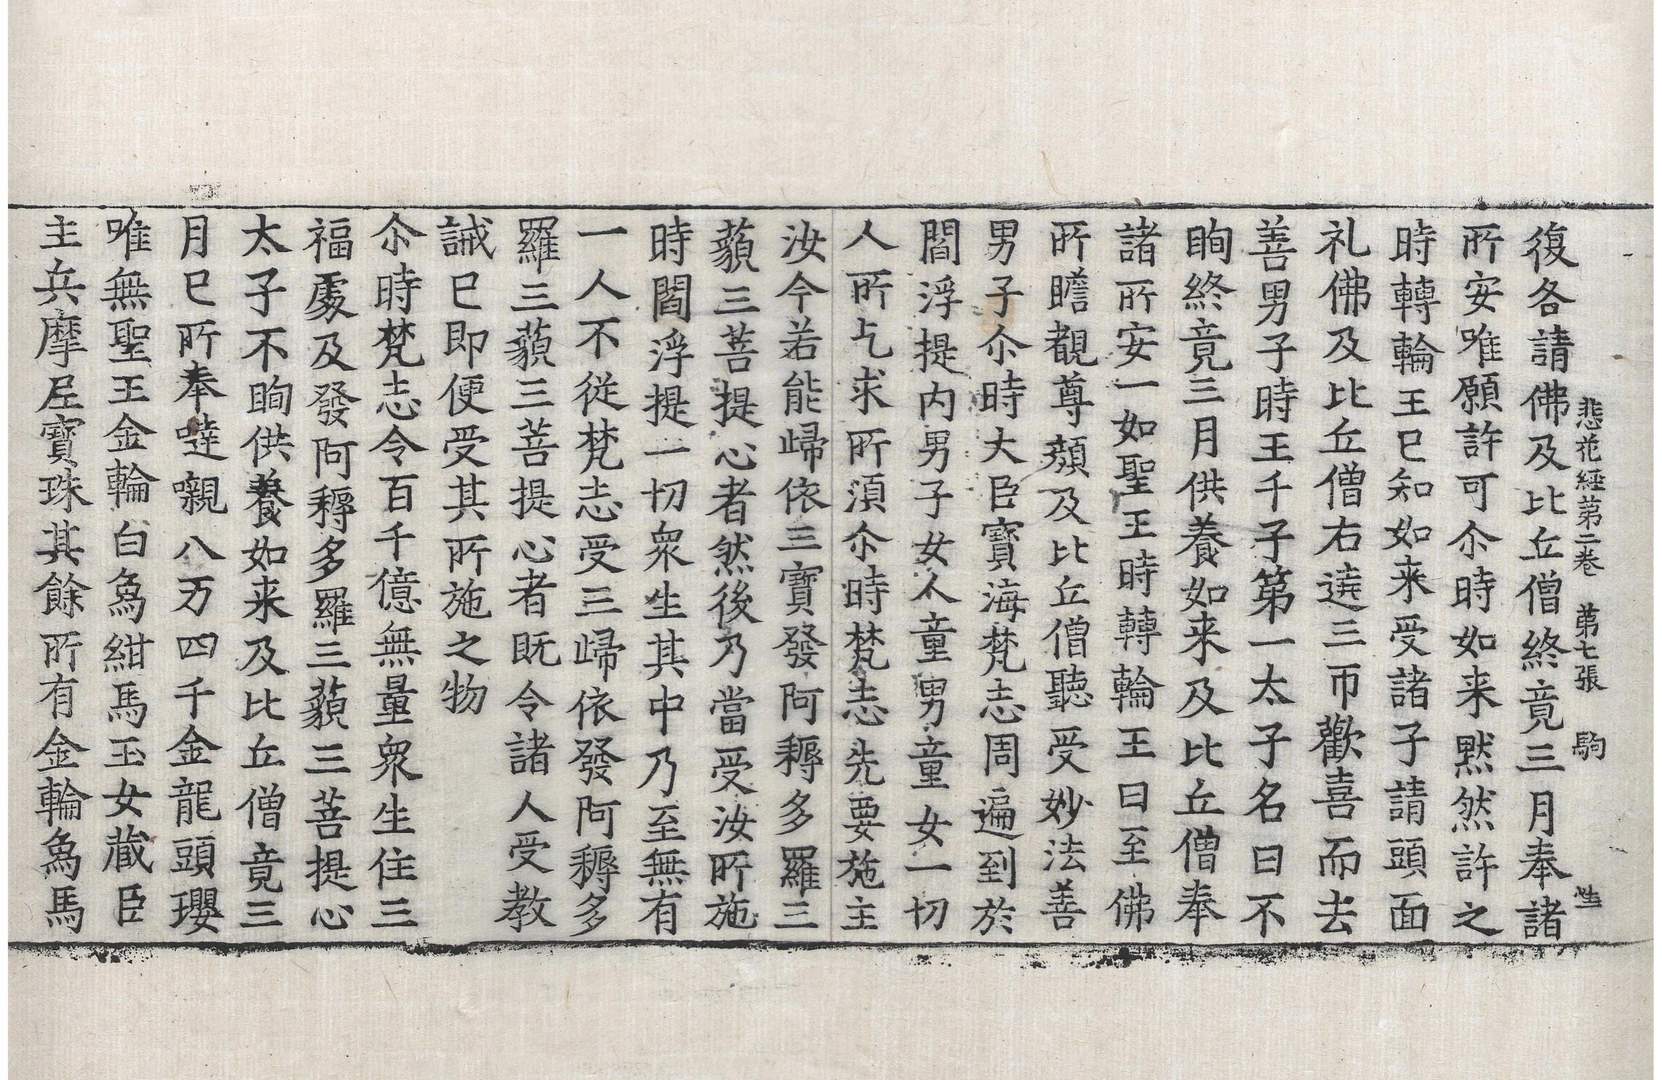 悲花經第二卷　第七張　駒
復各請佛及比丘僧終竟三月奉諸
所安唯願許可尒時如来黙然許之
時轉輪王已知如来受諸子請頭面
礼佛及比丘僧右遶三帀歡喜而去
善男子時王千子第一太子名曰不
眴終竟三月供養如来及比丘僧奉
諸所安一如聖王時轉輪王日至佛
所瞻覩尊顔及比丘僧聽受妙法善
男子尒時大臣寶海梵志周遍到於
閻浮提內男子女人童男童女一切
人所乞求所湏尒時梵志先要施主
汝今若能歸依三寶發阿耨多羅三
藐三菩提心者然後乃當受汝所施
時閻浮提一切衆生其中乃至無有
一人不從梵志受三歸依發阿耨多
羅三藐三菩提心者既令諸人受教
誡已即便受其所施之物
尒時梵志令百千億無量衆生住三
福處及發阿耨多羅三藐三菩提心
太子不眴供養如来及比丘僧竟三
月已所奉噠嚫八万四千金龍頭瓔
唯無聖王金輪白象紺馬玉女藏臣
主兵摩尼寶珠其餘所有金輪象馬